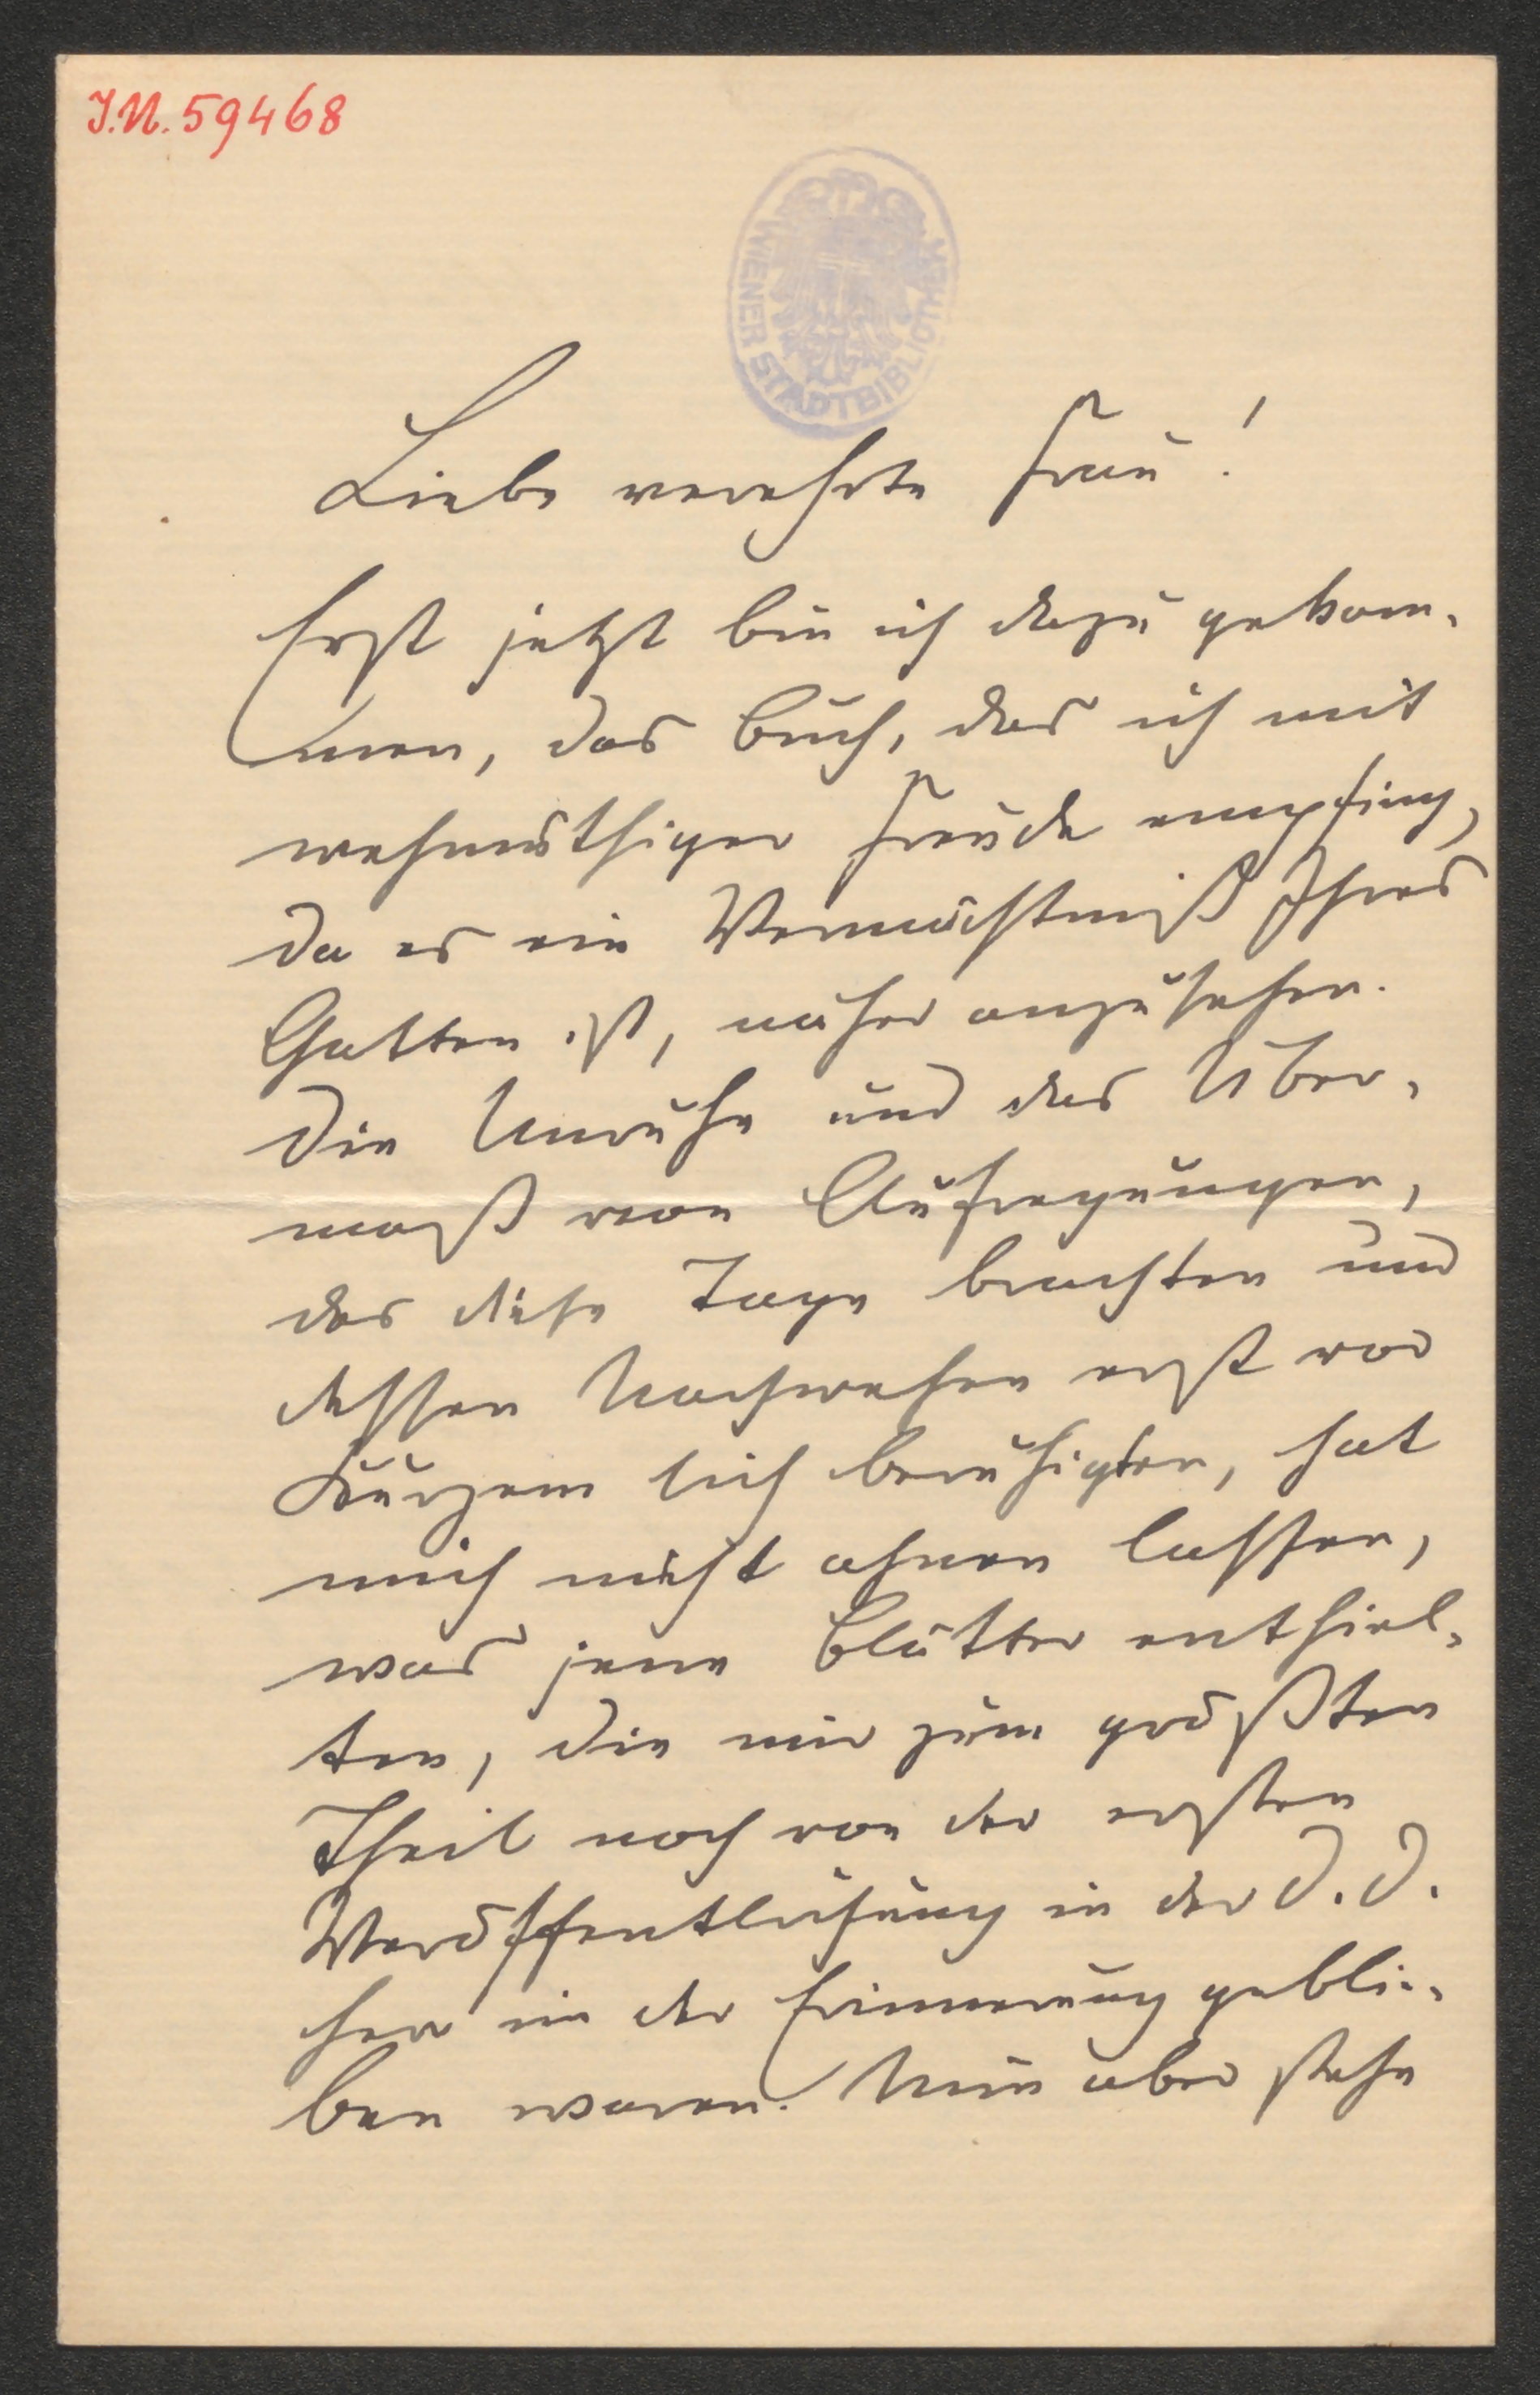 J.N. 59468
WIENER STADTBIBLIOTHEK
Liebe verehrte Frau!
Erst jetzt bin ich dazu gekom-
men, das Buch, das ich mit
wehmüthiger Freude empfing,
da es ein Vermächtniß Ihres
Gatten ist, näher anzusehen.
Die Unruhe und das Über-
maß von Aufregungen,
das diese Tage brachten und
dessen Nachwehen erst vor
Kurzem sich beruhigten, hat
mich nicht ahnen lassen,
was jene Blätter enthiel-
ten, die mir zum größten
Theil noch von der ersten
Veröffentlichung in der D. D.
her in der Erinnerung geblie-
ben waren. Nun aber stehe